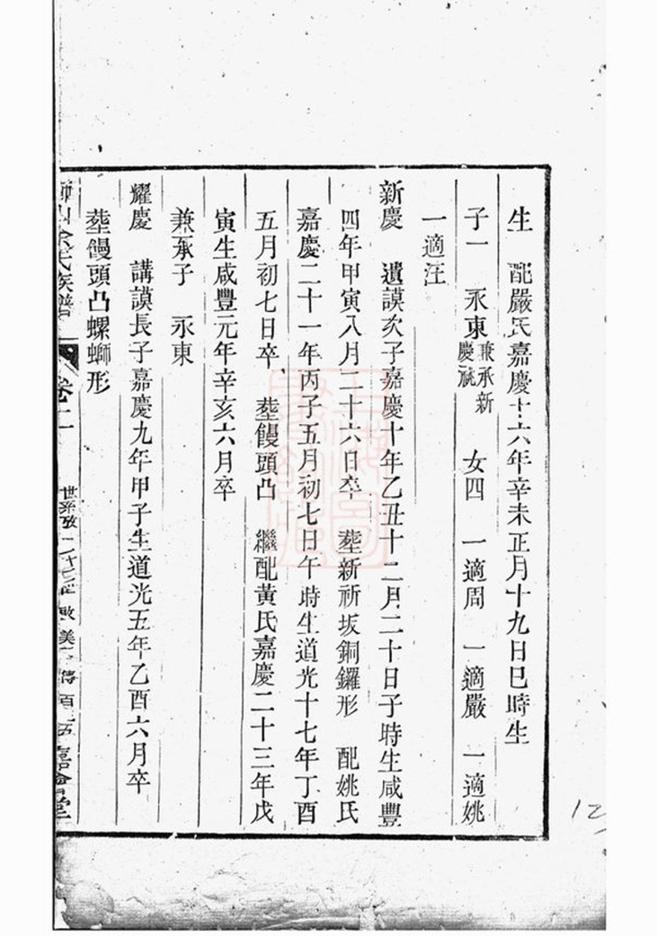 生　配嚴氏嘉慶十六年辛未正月十九日巳時生
子一　永東兼承新慶祧　女四　一適周　一適嚴　一適姚
一適汪
新慶　遺謨次子嘉慶十年乙丑十二月二十日子時生咸豐
四年甲寅八月二十六日卒　塟新祈坂銅鑼形　配姚氏
嘉慶二十一年丙子五月初七日午時生道光十七年丁酉
五月初七日卒　塟饅頭凸　繼配黃氏嘉慶二十三年戊
寅生咸豐元年辛亥六月卒
兼承子　永東
耀慶　講謨長子嘉慶九年甲子生道光五年乙酉六月卒
塟饅頭凸螺螄形
余氏族譜　卷二　世系攷
12